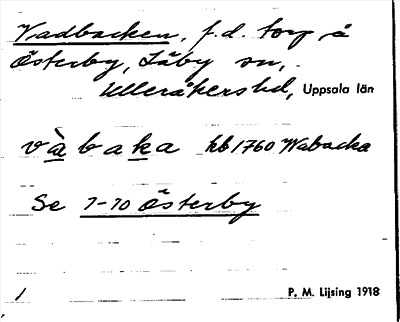 Vadbacken, f.d. torp å
Österby, Läby sn,
Ulleråkers hd, Uppsala län
vàbaka hb 1760 Wabacka
Se 1-10 Österby
1 P. M. Lijsing 1918